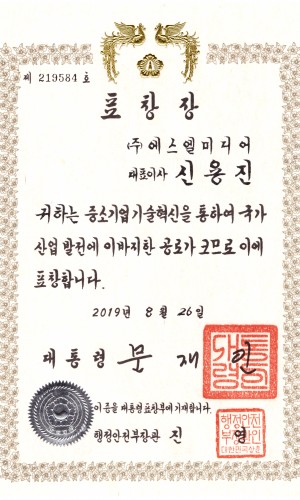 제 219584 호
표창장
(주)에스엘미디어
대표이사 신용진
귀하는 중소기업기술혁신을 통하여 국가
산업 발전에 이바지한 공로가 크므로 이에
표창합니다.
2019년 8월 26일
대통령 문재인
대통령의인
이 증을 대통령표창부에 기재합니다.
행정안전부장관 진영
행정안전부장관인
대한민국